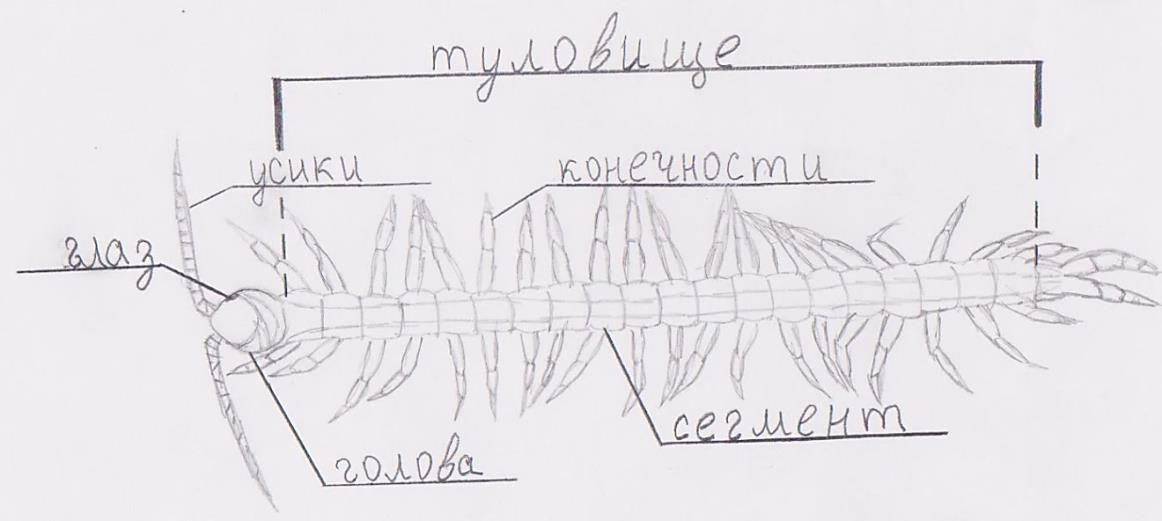 туловище
усики
конечности
глаз
сегмент
голова